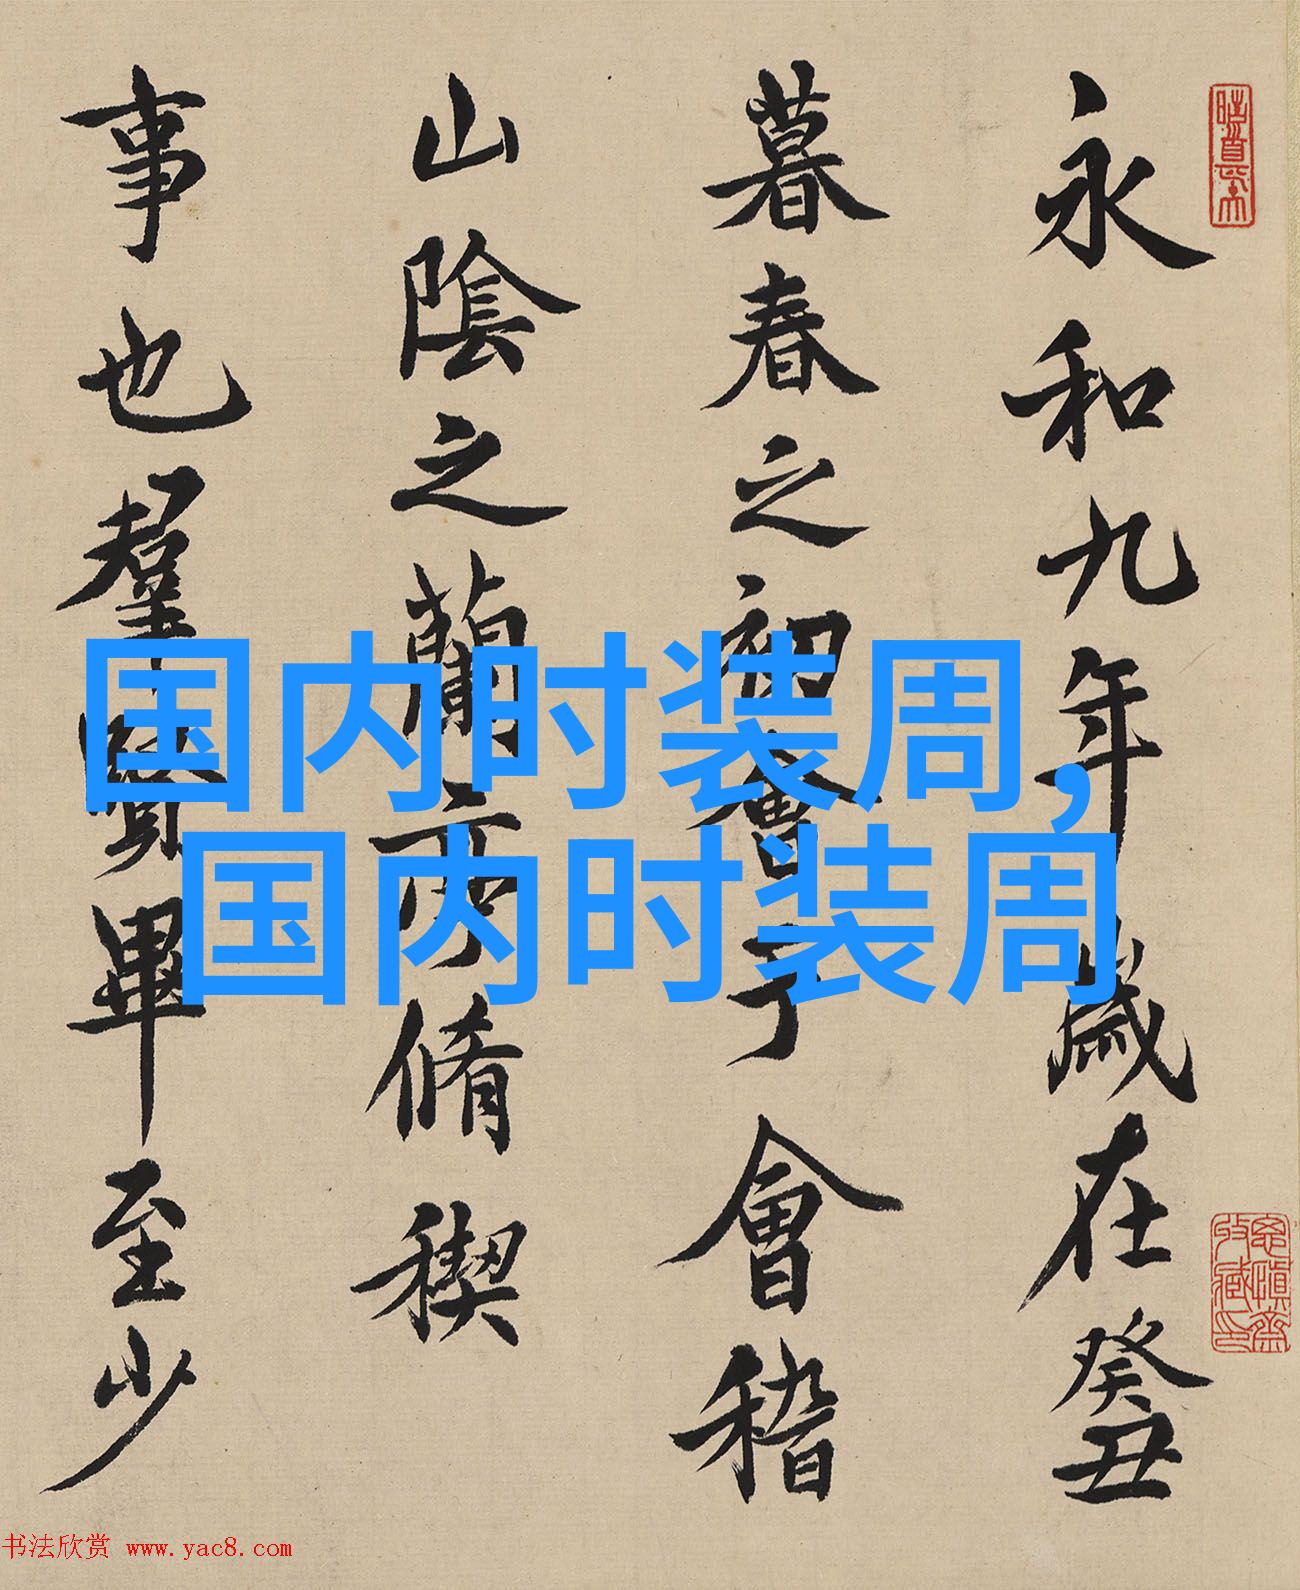 永和九年歲在癸丑
暮春之初會于會稽
山陰之蘭亭脩稧
事也羣賢畢至少
国内时装周,
国内时装周
书法欣赏 www.yac8.com